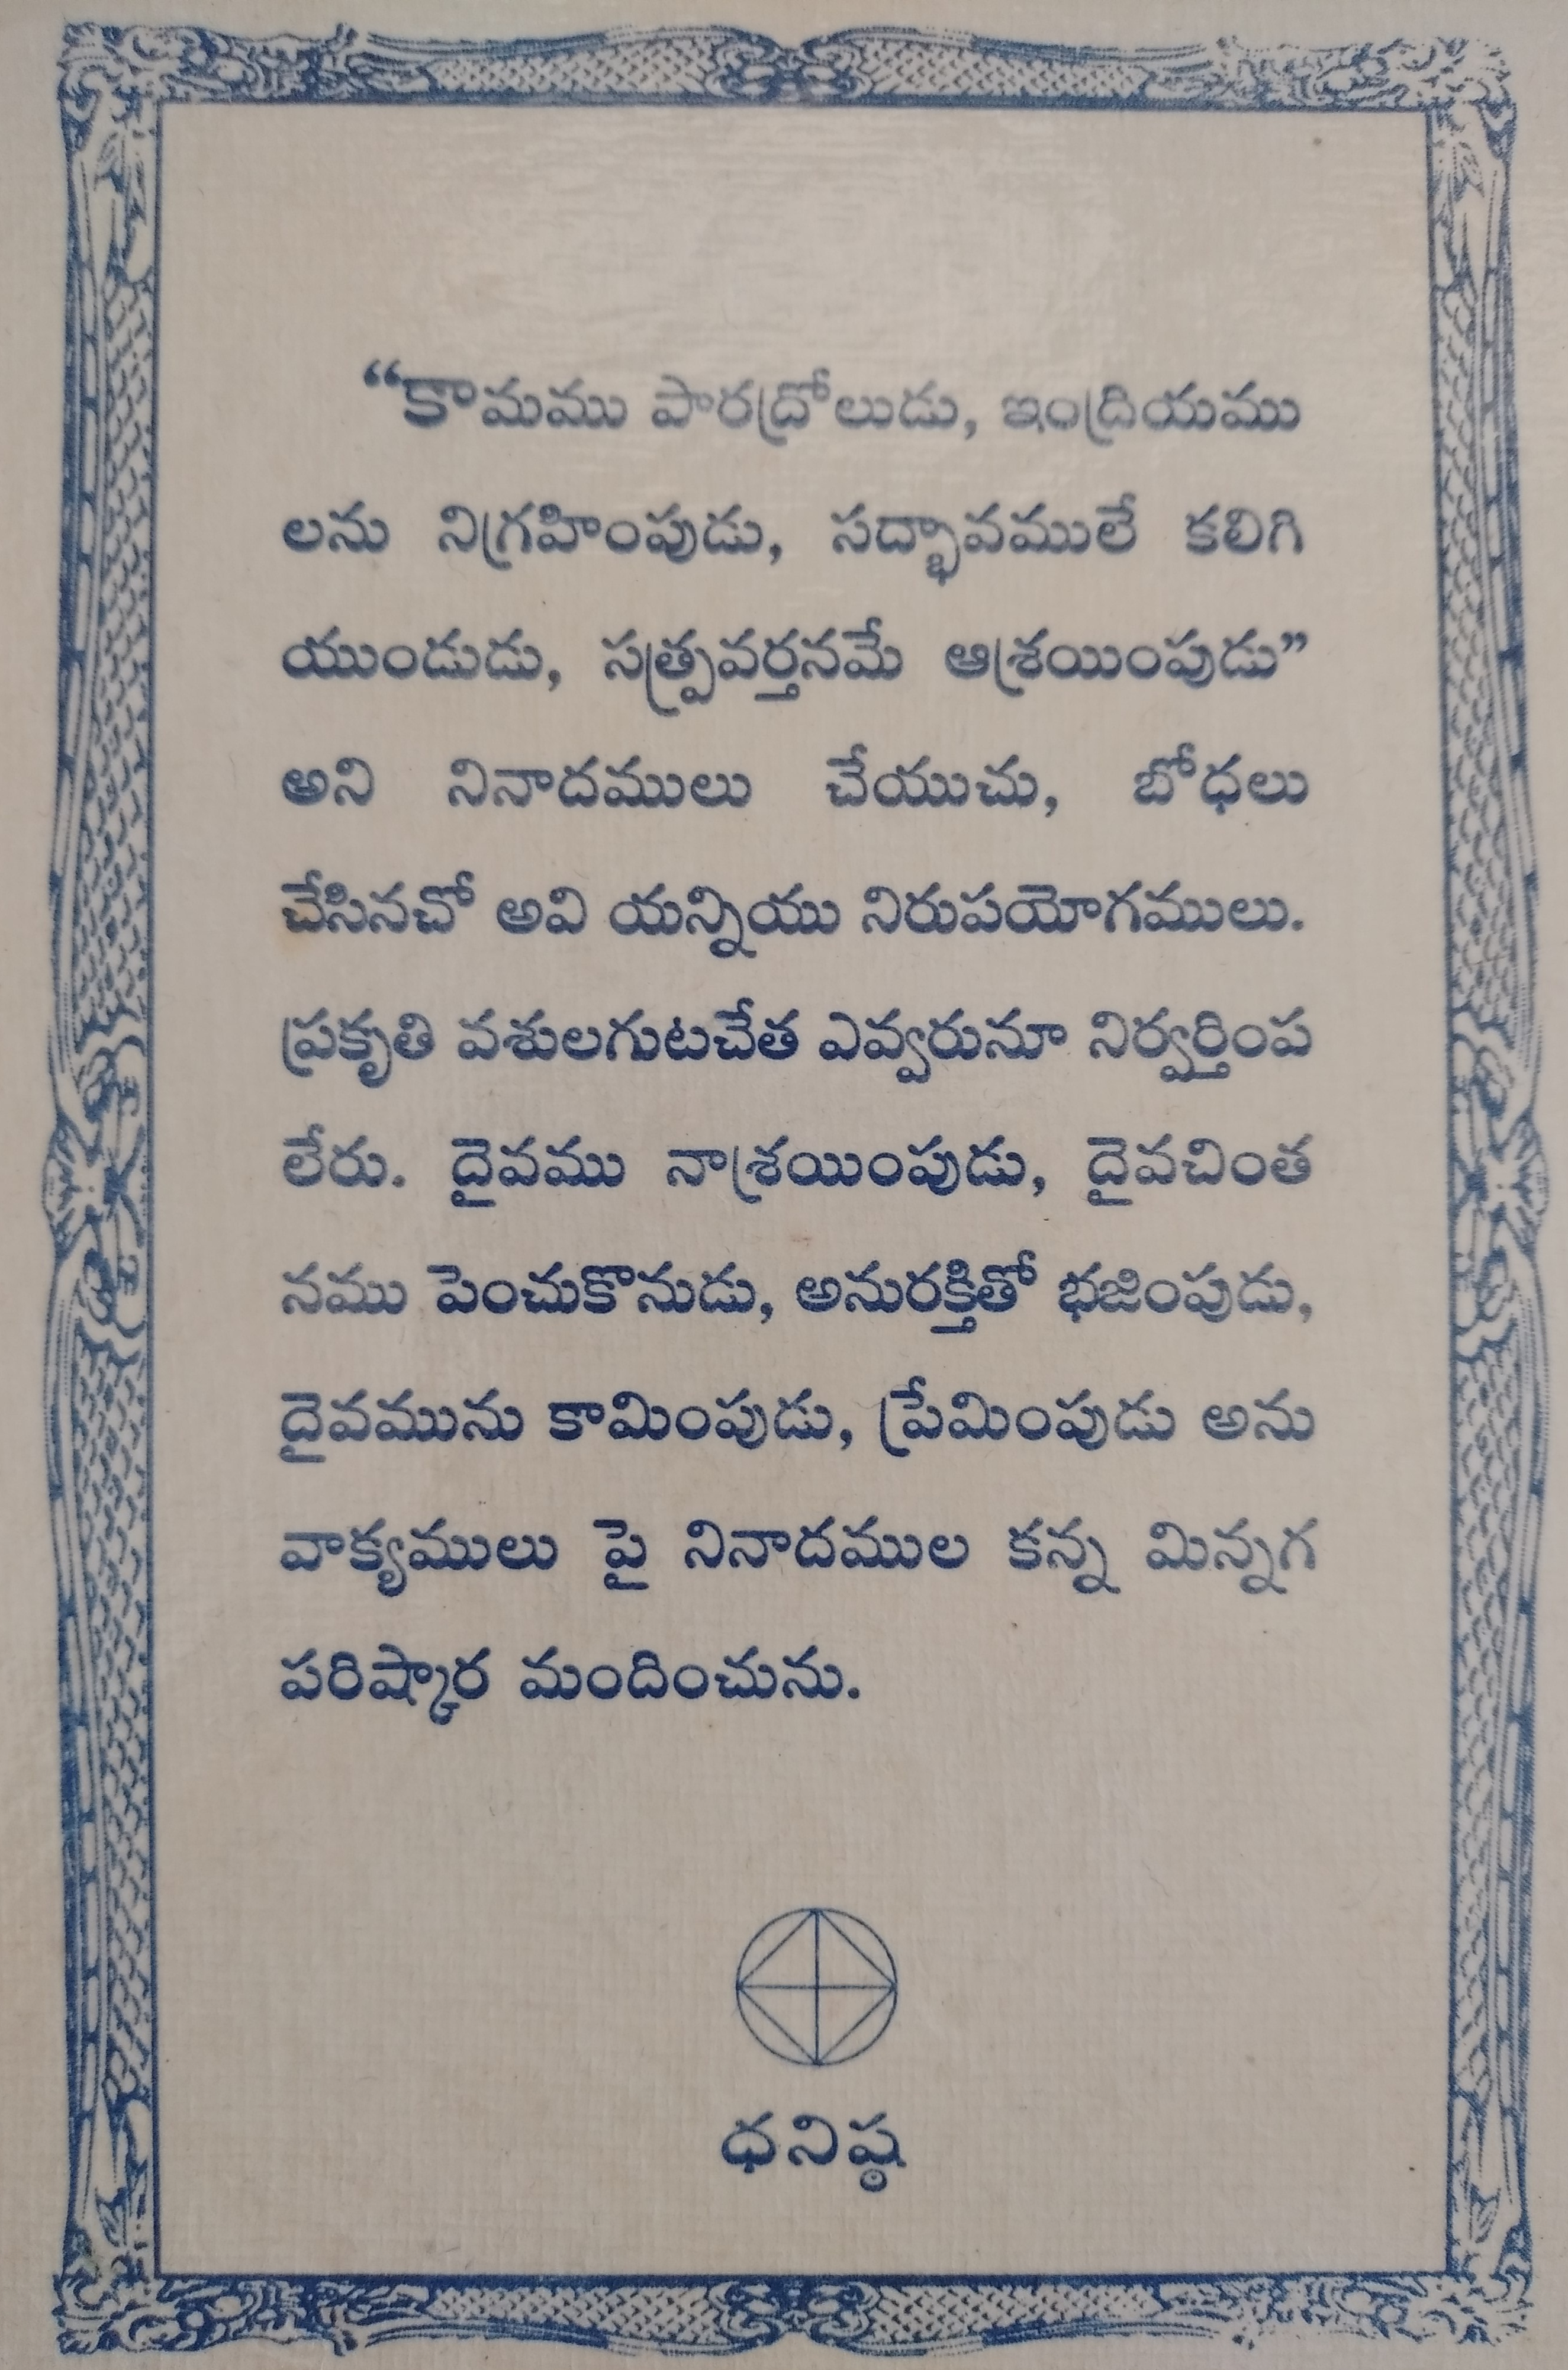 “కామము పారద్రోలుడు, ఇంద్రియము
లను నిగ్రహింపుడు, సద్భావములే కలిగి
యుండుడు, సత్ప్రవర్తనమే ఆశ్రయింపుడు”
అని నినాదములు చేయుచు, బోధలు
చేసినచో అవి యన్నియు నిరుపయోగములు.
ప్రకృతి వశులగుటచేత ఎవ్వరునూ నిర్వర్తింప
లేరు. దైవము నాశ్రయింపుడు, దైవచింత
నము పెంచుకొనుడు, అనురక్తితో భజింపుడు,
దైవమును కామింపుడు, ప్రేమింపుడు అను
వాక్యములు పై నినాదముల కన్న మిన్నగ
పరిష్కార మందించును.
ధనిష్ఠ